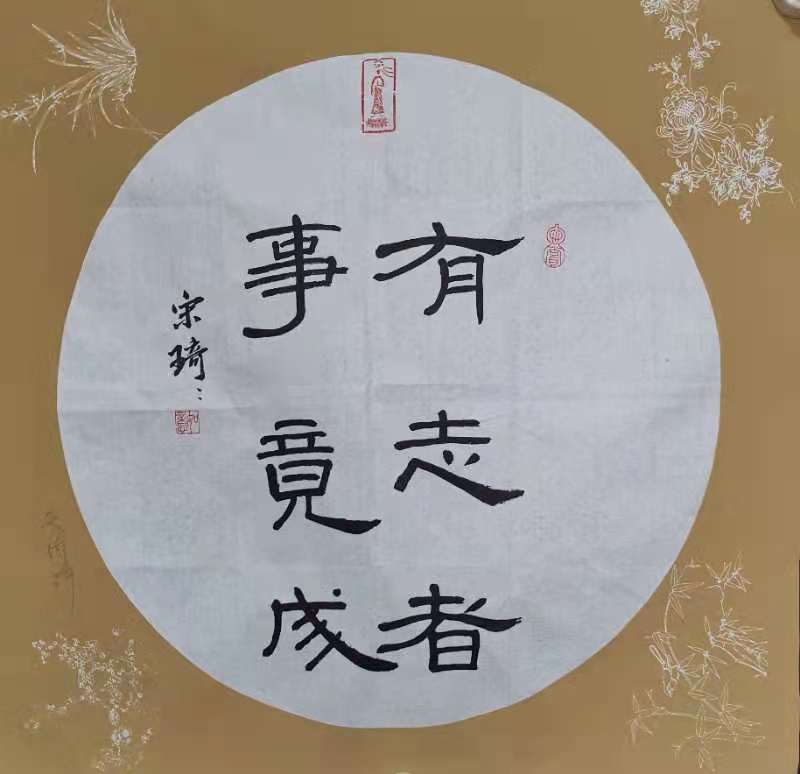 有志者
事竟成
宋琦